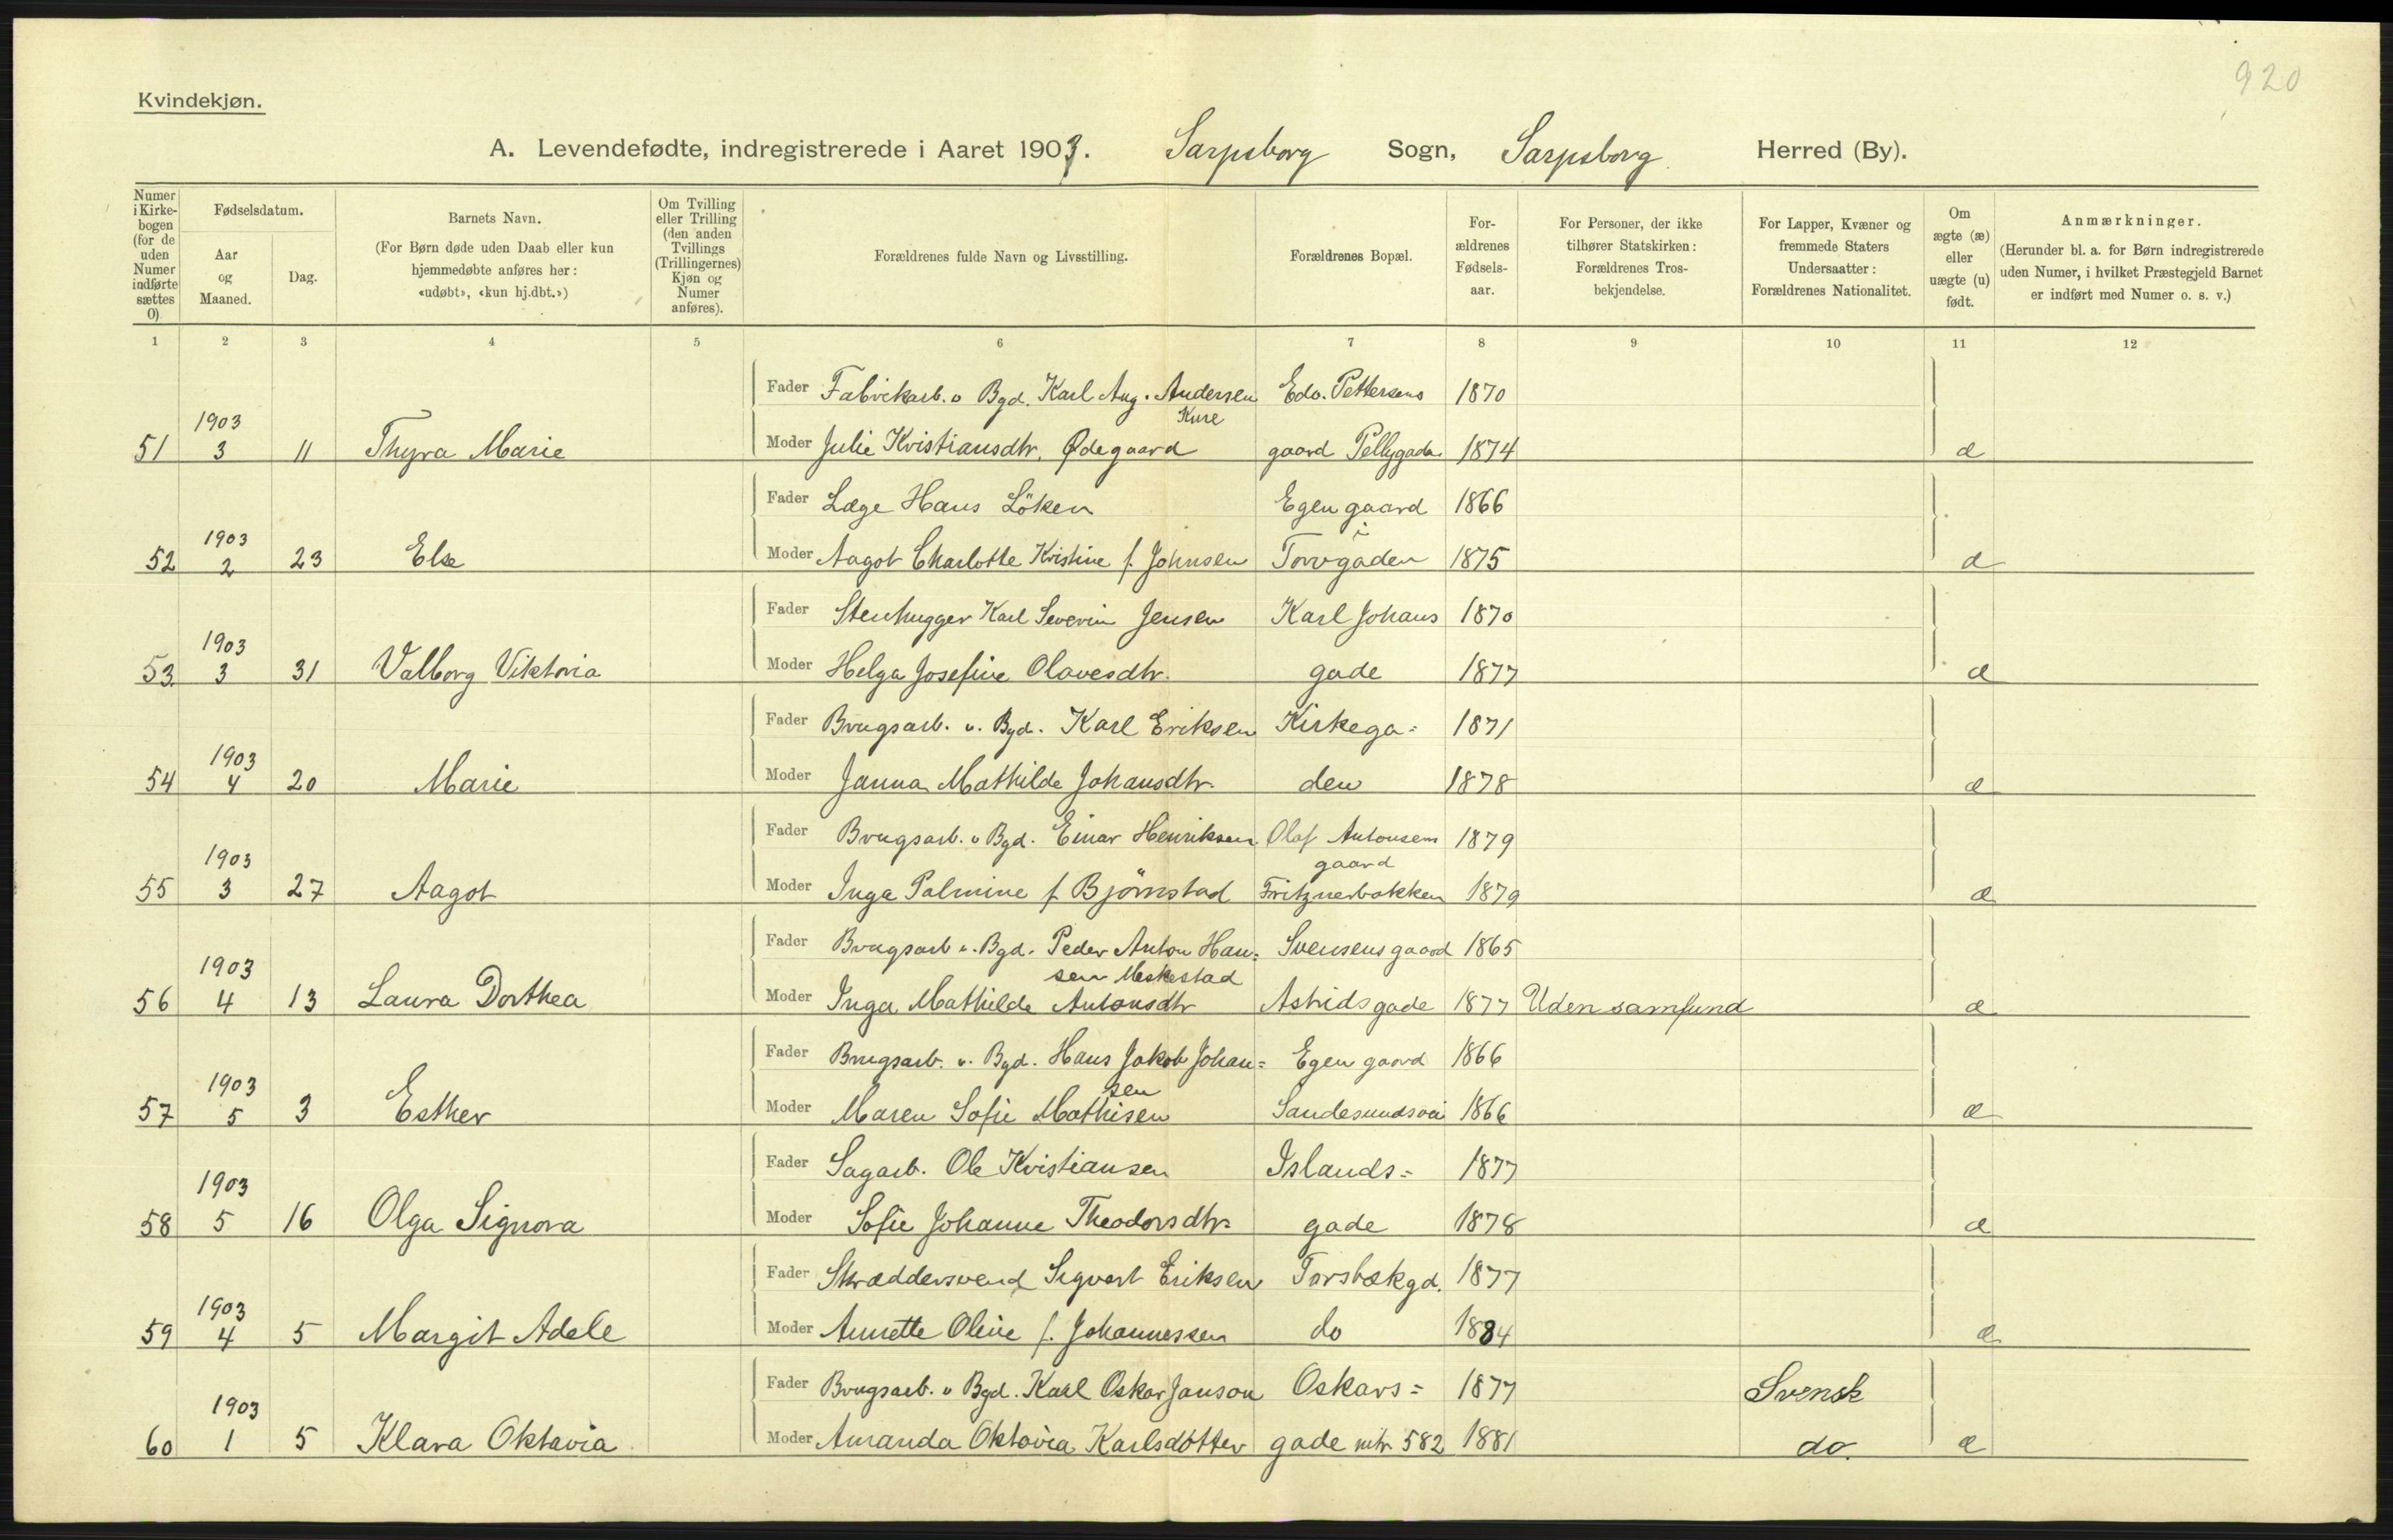 920
Kvindekjøn.
A. Levendefødte, indregistrerede i Aaret 1903. Sarpsborg Sogn, Sarpsborg Herred (By).
Numer i Kirkebogen (for de uden Numer indførte sættes 0)
Fødselsdatum.
Aar og Maaned.
Dag.
Barnets Navn.
(For Børn døde uden Daab eller kun hjemmedøbte anføres her: «udøbt», «kun hj.dbt.»)
Om Tvilling eller Trilling (den anden Tvillings (Trillingernes) Kjøn og Numer anføres).
Forældrenes fulde Navn og Livsstilling.
Forældrenes Bopæl.
Forældrenes Fødselsaar.
For Personer, der ikke tilhører Statskirken: Forældrenes Trosbekjendelse.
For Lapper, Kvæner og fremmede Staters Undersaatter: Forældrenes Nationalitet.
Om ægte (æ) eller uægte (u) født.
Anmærkninger.
(Herunder bl. a. for Børn indregistrerede uden Numer, i hvilket Præstegjeld Barnet er indført med Numer o. s. v.)
1 2 3 4 5 6 7 8 9 10 11 12
Fader Fabrikarb. v Bgd. Karl Aug. Andersen Edv. Pettersens 1870
Kure
1903
51 3 11 Thyra Marie Moder Julie Kristiansdtr. Ødegaard gaard Pellygada 1874 æ
Fader Læge Hans Löken Egen gaard 1866
i
1903
52 2 23 Else Moder Aagot Charlotte Kristine f. Johnsen Torvgaden 1875 æ
Fader Stenhugger Karl Severin Jensen Karl Johans 1870
1903
53 3 31 Valborg Viktoria Moder Helga Josefine Olavesdtr. gade 1877 æ
Fader Brugsarb. v. Bgd. Karl Eriksen Kirkega= 1871
1903
54 4 20 Marie Moder Janna Mathilde Johansdtr. den 1878 æ
Fader Brugsarb. v Bgd. Einar Henriksen Olaf Antonsens 1879
gaard
1903
55 3 27 Aagot Moder Inga Palmine f Björnstad Fritznerbakken 1879 æ
Fader Brugsarb v. Bgd. Peder Anton Han= Svensens gaard 1865
sen Meskestad
1903
56 4 13 Laura Dorthea Moder Inga Mathilde Antonsdtr Astrids gade 1877 Uden samfund æ
Fader Brugsarb. v. Bgd. Hans Jakob Johan= Egen gaard 1866
sen
1903
57 5 3 Esther Moder Maren Sofie Mathisen Sandesundsvei 1866 æ
Fader Sagarb. Ole Kristiansen Islands= 1877
1903
58 5 16 Olga Signora Moder Sofie Johanne Theodorsdtr. gade 1878 æ
Fader Skræddersvend Sigvart Eriksen Torsbækgd. 1877
1903
59 4 5 Margit Adele Moder Annette Oline f. Johannessen do 1884 æ
Fader Brugsarb. v Bgd. Karl Oskar Janson Oskars= 1877 Svensk
1903
60 1 5 Klara Oktavia Moder Amanda Oktavia Karlsdotter gade mtr. 582 1881 do. æ